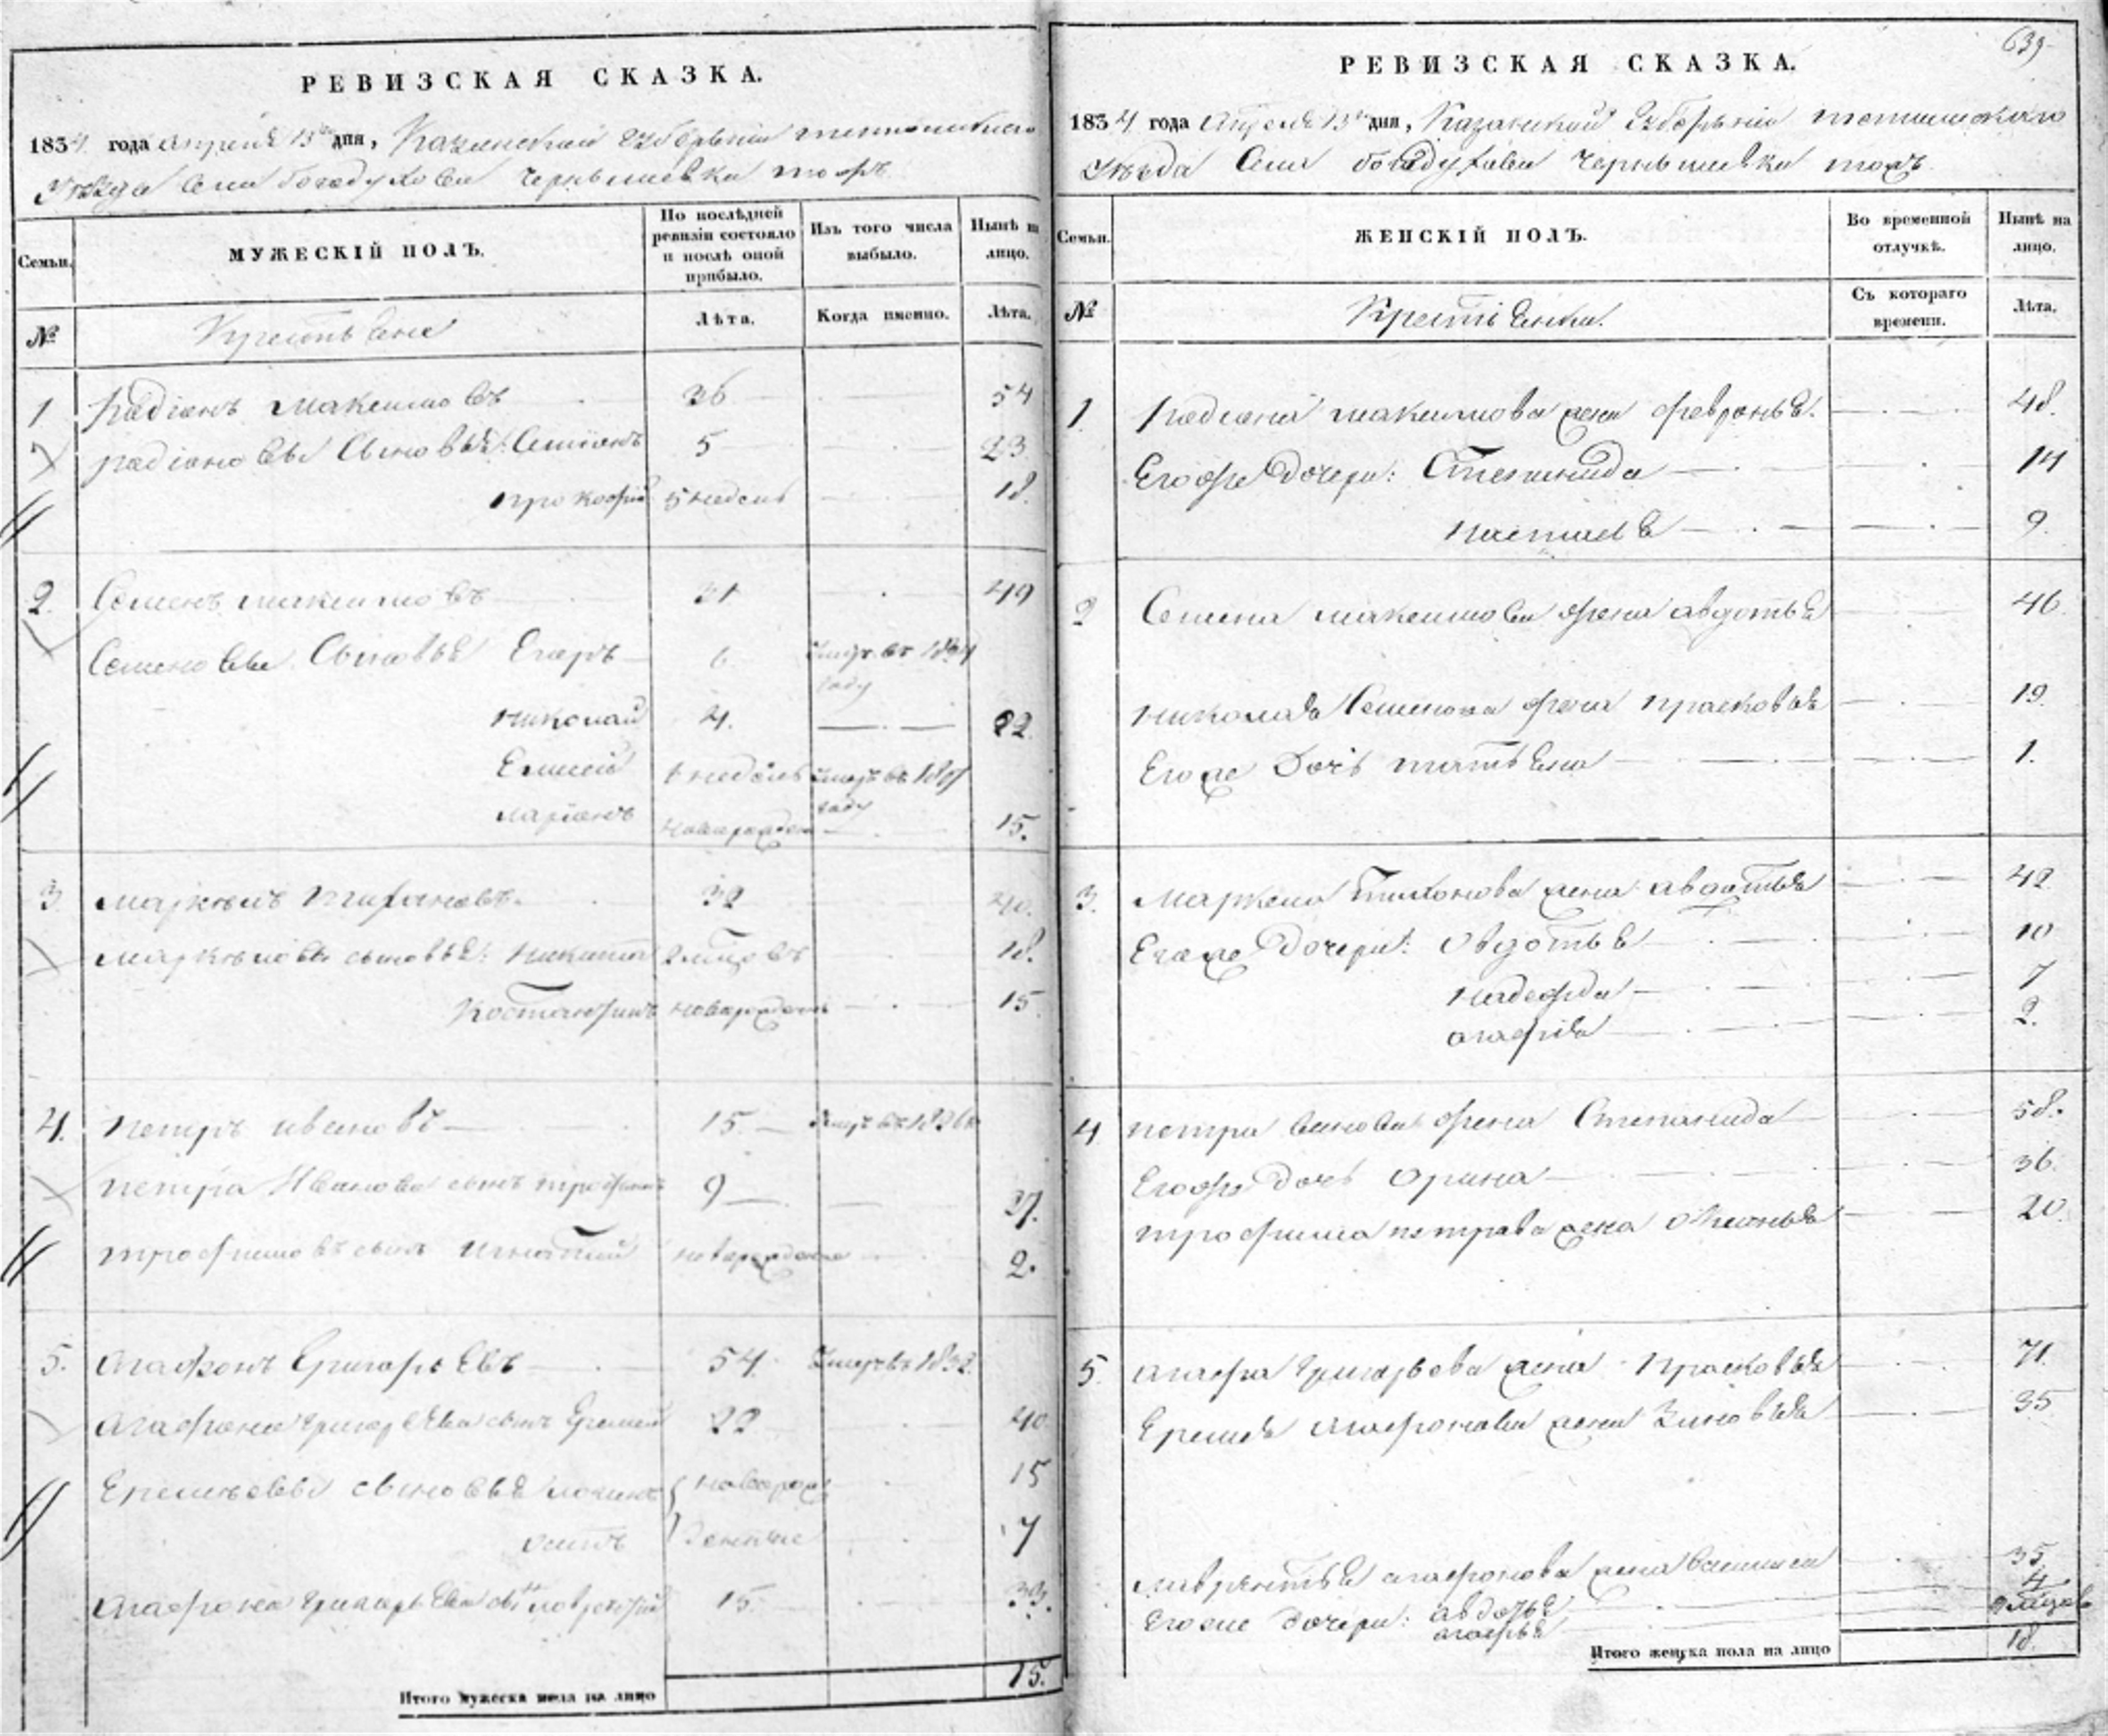 РЕВИЗСКАЯ СКАЗКА.
1834 года апреля 13 дня, Казанской губернии тетюшскаго
уезда села Богодухова Чернышевка тожъ
Семьи.
МУЖЕСКІЙ ПОЛЪ.
По послѣдней ревизіи состояло и послѣ оной прибыло.
Изъ того числа выбыло.
Нынѣ на лицо.
№
Крестьяне
Лѣта.
Когда именно.
Лѣта.
1 Радіонъ Максимовъ 36 54
радіоновы сыновья: Семіонъ 5 23
прокофій 5 недель 18.
2. Семенъ максимовъ 31 49
Семеновы Сыновья Егоръ 6 умръ въ
году
николай 4. 22
Елисей недель умеръ въ
году
ларіонъ новорожден 15.
3 маркелъ тихановъ. 32
маркеловы сыновья: никита 18.
Костантинъ новорожденъ 15
4. петръ ивановъ 15.
петра Иванова сынъ трофимъ 9 27.
трофимовъ сынъ игнатий новорожденъ 2.
5. агафонъ Григорьевъ 54 умеръ въ 1832.
агафона григорьева сынъ Еремей 22 40
Еремеевы сыновья логинъ новорож 15
осипъ денные 7
агафона григорьева сынъ 15. 33.
Итого мужеска пола на лицо 15.
639
РЕВИЗСКАЯ СКАЗКА.
1834 года апреля 13 дня, Казанской губерніи тетюшскаго
уезда села богодухова чернышевка тожъ
Семьи.
ЖЕНСКІЙ ПОЛЪ.
Во временной отлучкѣ.
Нынѣ на лицо.
№
Крестьянки.
Съ котораго времени.
Лѣта.
1. Радиона максимова жена февронья. 48.
Егоже дочери: Степанида 14
настасья 9.
2 Семена максимова жена авдотья 46.
николая Семенова жена прасковья 19.
Егоже дочь татьяна 1.
3. маркела тихонова жена авдотья 42
Егоже дочери: овдотья 10
надежда 7
агафия 2.
4 петра иванова жена Степанида 58.
Егоже дочь орина 36.
трофима петрова жена 20.
5. агафона григорьева жена прасковья 71.
Еремея агафонова жена Зиновья 35
лаврентья агафонова жена василиса 35
Егоже дочери: авдотья 4
агафья
Итого женска пола на лицо 18.